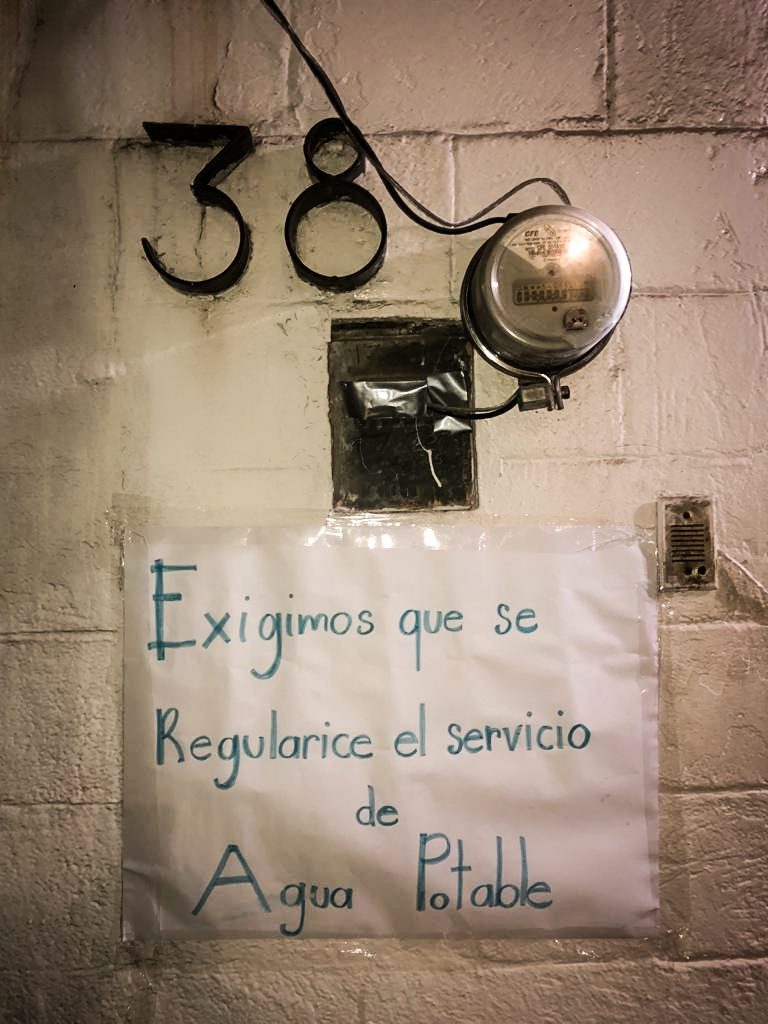 38
CFE
Exigimos que se
Regularice el servicio
de
Agua Potable